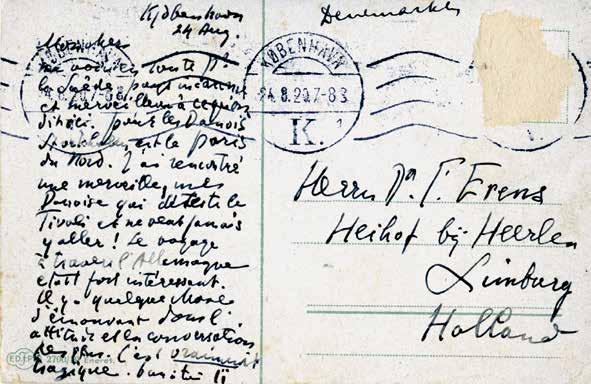 Kjøbenhavn
24 Aug.
Denemarken
KØBENHAVN
24.8.20.7-8S
K.
me voici en route
la Suède, pays inconnu
et merveilleux à ce qu'on
dit ici. pour les Danois
Stockholm est le paris
du Nord. J'ai rencontré
une merveille, une
Danoise qui déteste le
Tivoli et ne veut jamais
y aller! Le voyage
à travers l'Allemagne
était fort intéressant.
Il y a quelque chose
d'émouvant dans l'
attitude et la conversation
des gens. C'est vraiment
tragique.
Herrn Dr. F. Erens
Heihof bij Heerlen
Limburg
Holland